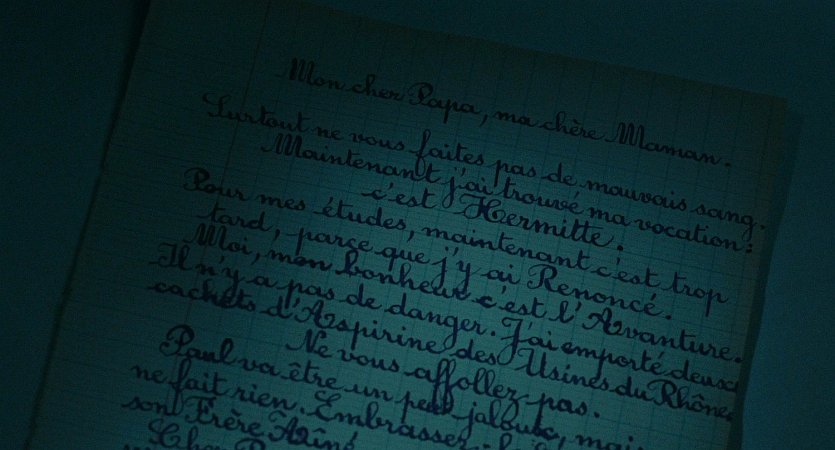 Mon cher Papa, ma chère Maman.
Surtout ne vous faites pas de mauvais sang.
Maintenant j'ai trouvé ma vocation:
c'est Hermitte.
Pour mes études, maintenant c'est trop
tard, parce que j'y ai Renoncé.
Moi, mon bonheur c'est l'Avanture.
Il n'y a pas de danger. J'ai emporté deux
cachets d'Aspirine des Usines du Rhône.
Ne vous affollez pas.
Paul va être un peu jaloux, mais
ne fait rien. Embrassez
son Frère Aîné
Cher